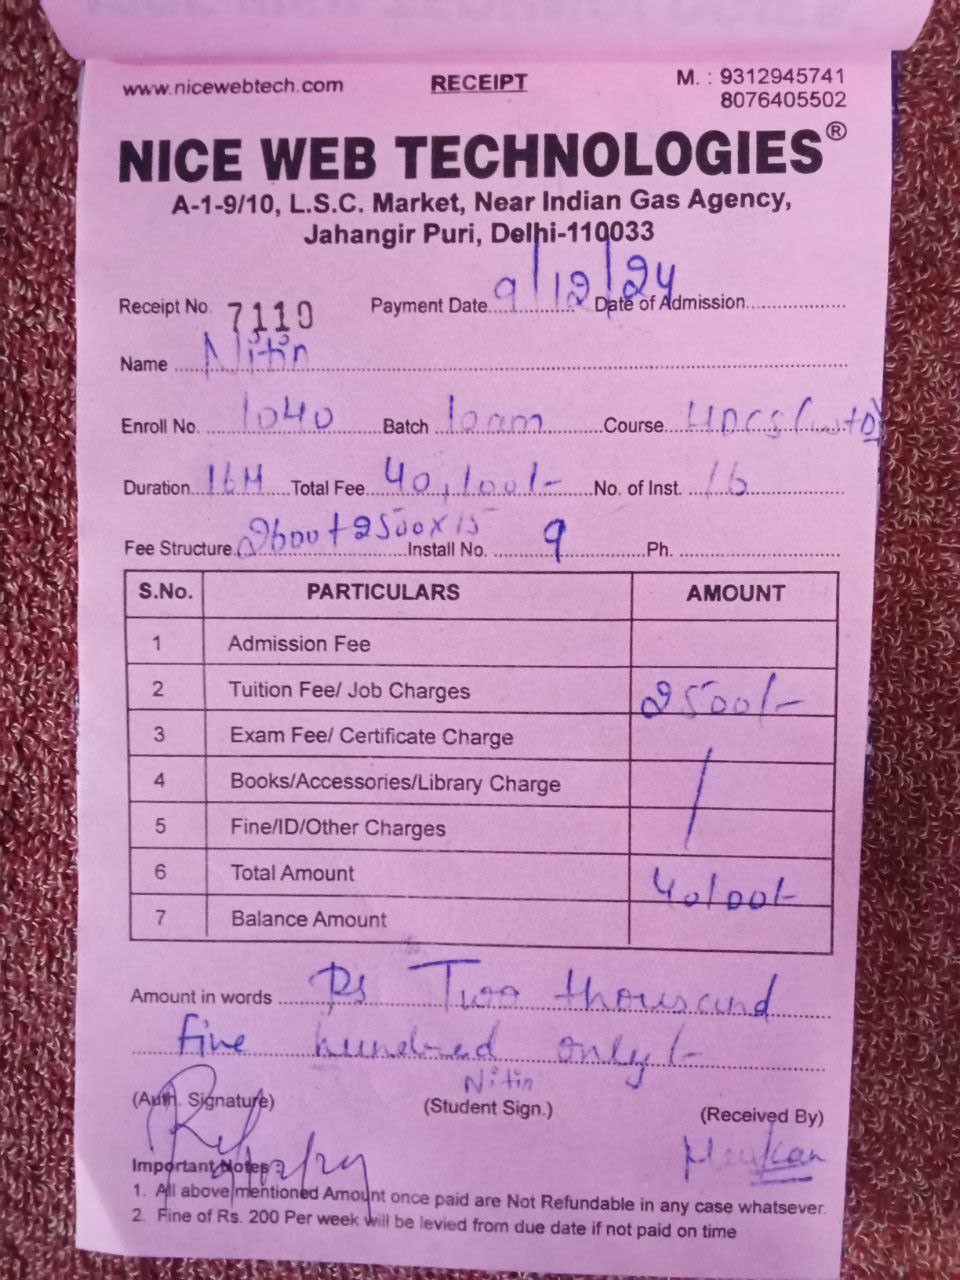 www.nicewebtech.com RECEIPT M. : 9312945741
8076405502
NICE WEB TECHNOLOGIES®
A-1-9/10, L.S.C. Market, Near Indian Gas Agency,
Jahangir Puri, Delhi-110033
Receipt No. 7110 Payment Date 9/12/24 Date of Admission
Name Nitin
Enroll No. 1040 Batch 10am Course
Duration 16M Total Fee 40,100/- No. of Inst. 16
Fee Structure 2600+2500x15 Install No. 9 Ph.
S.No. PARTICULARS AMOUNT
1 Admission Fee
2 Tuition Fee/ Job Charges 2500/-
3 Exam Fee/ Certificate Charge
4 Books/Accessories/Library Charge
5 Fine/ID/Other Charges
6 Total Amount 40100/-
7 Balance Amount
Amount in words Rs Two thousand
five hundred only/-
Nitin
(Auth. Signature) (Student Sign.) (Received By)
Important Notes :
1. All above mentioned Amount once paid are Not Refundable in any case whatsever.
2. Fine of Rs. 200 Per week will be levied from due date if not paid on time